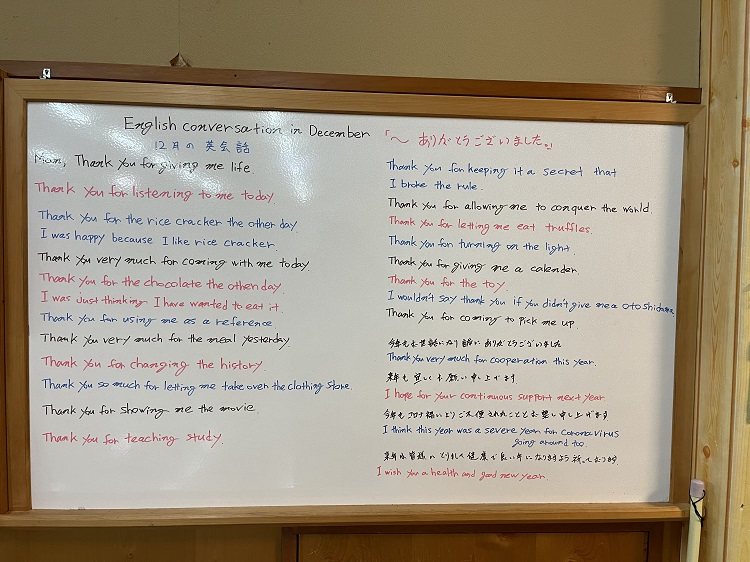 English conversation in December 「～ ありがとうございました。」
12月の 英会話
Mom, Thank you for giving me life.
Thank you for listening to me today.
Thank you for the rice cracker the other day.
I was happy because I like rice cracker.
Thank you very much for coming with me today
Thank you for the chocolate the other day.
I was just thinking I have wanted to eat it.
Thank you for using me as a reference
Thank you very much for the meal yesterday.
Thank you for changing the history
Thank you so much for letting me take over the clothing store.
Thank you for showing me the movie.
Thank you for teaching study.
Thank you for keeping it a secret that
I broke the rule.
Thank you for allowing me to conquer the world.
Thank you for letting me eat truffles.
Thank you for turning on the light.
Thank you for giving me a calender.
Thank you for the toy.
I wouldn't say thank you if you didn't give me a otoshidama.
Thank you for coming to pick me up.
今年もお世話になり誠にありがとうございました
Thank you very much for cooperation this year.
来年も宜しくお願い申し上げます
I hope for your continuous support next year
今年もコロナ禍に
申し上げます
I think this year was a severe year for coronavirus
going around too.
来年が皆様にとりまして健康で良い年になりますよう
I wish you a health and good new year.